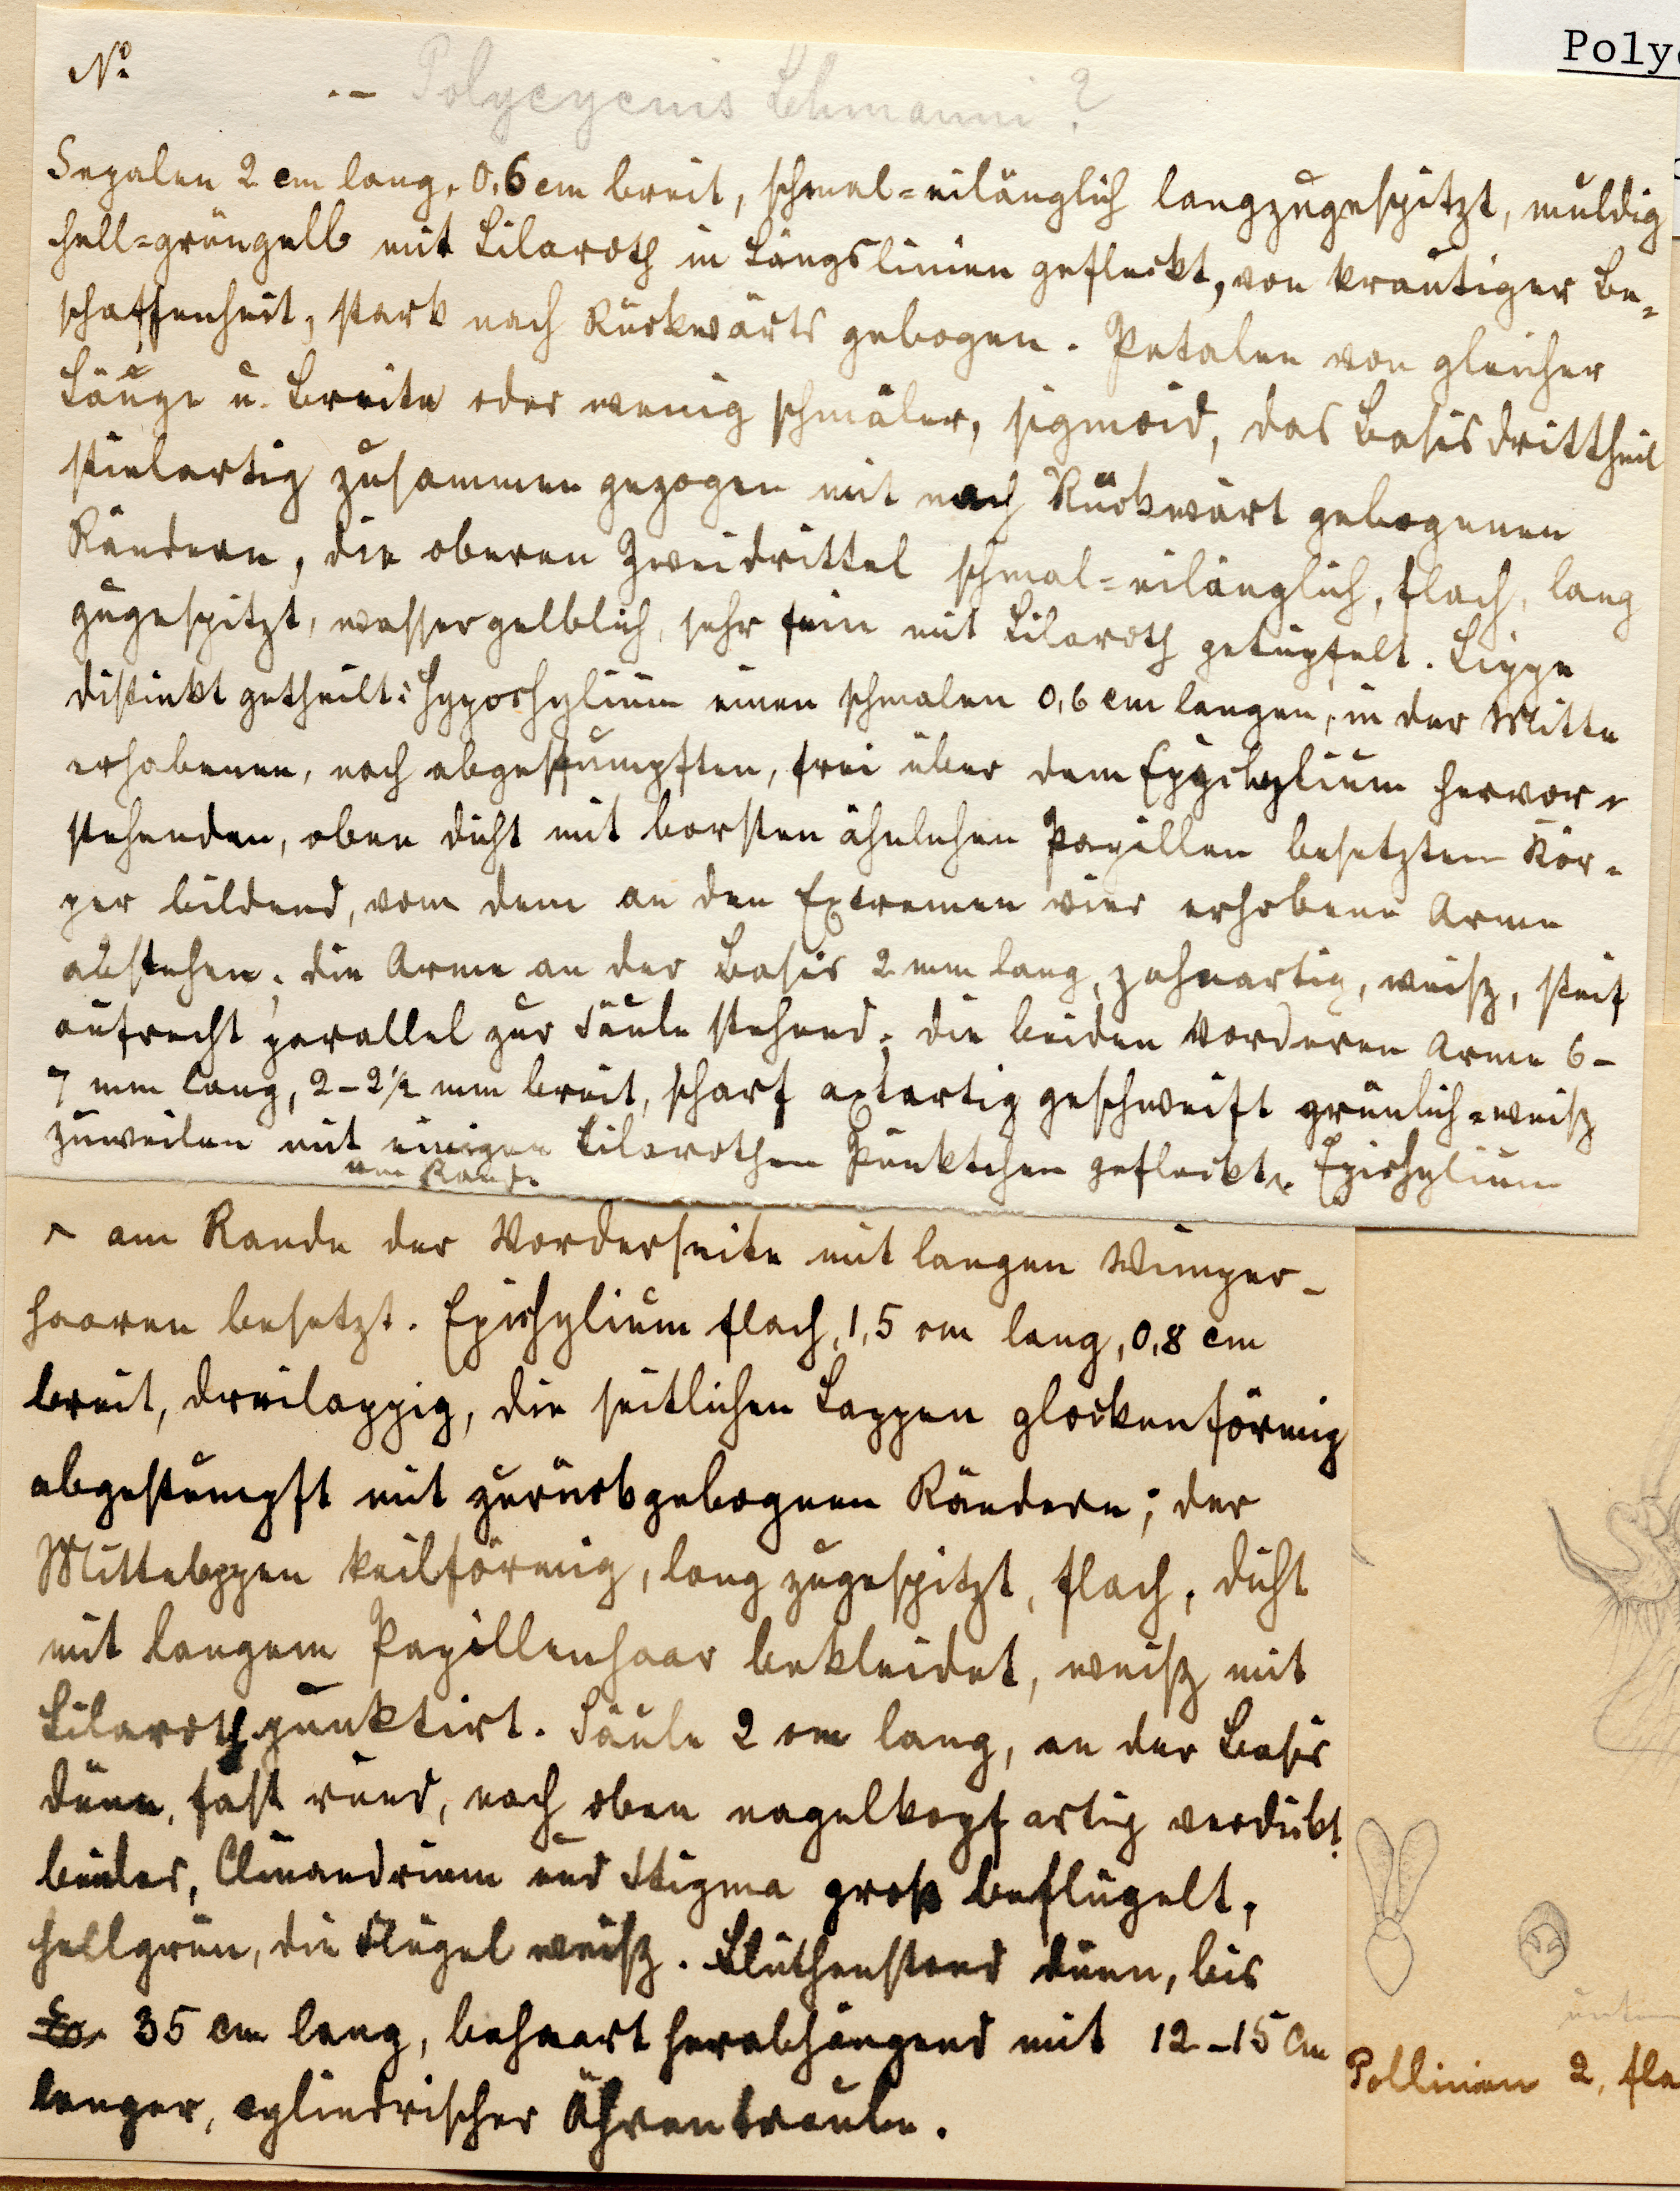 Poly
Nº
.– Polycycnis Lehmanni ?
Sepalen 2 cm lang, 0,6 cm breit, schmal=eilänglich langzugespitzt, muldig
hell=grüngelb mit Lilaroth in Längslinien gefleckt, von krautiger Be=
schaffenheit, stark nach Rückwärts gebogen. Petalen von gleicher
Länge u. Breite oder wenig schmäler, sigmoid, das Basisdrittheil
stielartig zusammen gezogen mit nach Rückwärt gebogenen
Rändern, die oberen Zweidrittel schmal=eilänglich, flach, lang
zugespitzt, wassergelblich, sehr fein mit Lilaroth getüpfelt. Lippe
distinkt getheilt: Hypochylium einen schmalen 0,6 cm langen, in der Mitte
erhabenen, noch abgestumpften, frei über dem Epychylium hervor=
stehenden, oben dicht mit borsten ähnlichen Papillen besetzten Kör=
per bildend, vom dem an den Extremen vier erhobene Arme
abstehen; die Arme an der Basis 2 mm lang, zahnartig, weisz, steif
aufrecht parallel zur Säule stehend; die beiden Vorderen Arme 6–
7 mm lang, 2–2½ mm breit, scharf axtartig geschweift grünlich=weisz
zuweilen mit einigen Lilarothen Pünktchen gefleckt. Epichylium
am Rande
^ am Rande der Vorderseite mit langen Wimper–
haaren besetzt. Epichylium flach, 1,5 cm lang, 0,8 cm
breit, dreilappig, die seitlichen Lappen glockenförmig
abgestumpft mit zurückgebognen Rändern; der
Mittelappen keilförmig, lang zugespitzt, flach, dicht
mit langem Papillenhaar bekleidet, weisz mit
Lilaroth punktirt. Säule 2 cm lang, an der Basis
dünn, fast rund, nach oben nagelkopf artig verdickt,
Clinandrium und Stigma gross beflügelt,
hellgrün, die Flügel weisz. Blüthenstand dünn, bis
35 cm lang, behaart herabhängend mit 12–15 Cm
langer, cylindrischer Ährentraube.
unten
Pollinien 2, fla